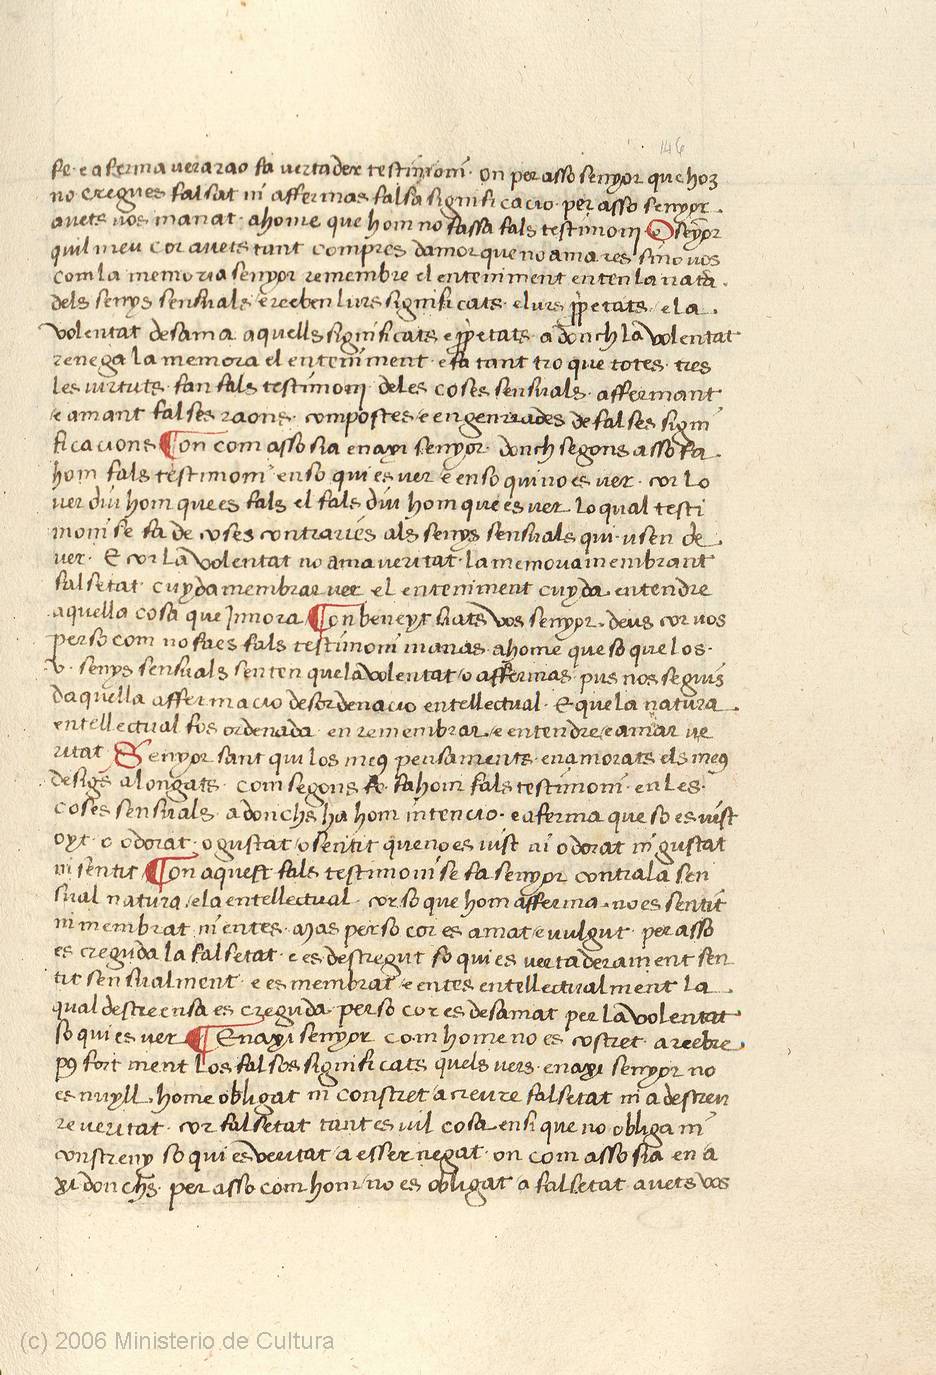 146
fe · e aferma vera rao fa vertader testimoni · on per asso senyor que hom
no cregues falsat ni affermas falsa significacio · per asso senyor
avets vos manat · a home que hom no fassa fals testimoni O senyor
quil meu cor avets tant compres damor que no ama res sino vos
com la memoria senyor remembre el enteniment enten la nata
dels senys sensuals / e reeben lurs significats · e lurs ppetats / e la
volentat desama aquells significats e ppetats · adonch la volentat
renega la memora el enteniment · e fa tant tro que totes · tres
les virtuts · fan fals testimoni · de les coses sensuals · affermant
e amant falses raons · compostes / e engenrades de falses signi
ficacions ¶ On com asso sia en axi senyor · donch segons asso fa
hom fals testimoni en so qui es ver e en so qui no es ver · cor lo
ver diu hom que es fals el fals diu hom que es ver lo qual testi
moni se fa de coses contraries als senys sensuals qui · usen de
ver · E cor la volentat no ama veritat · la memoria membrant
falsetat cuyda membrar ver el enteniment cuyda entendre
aquella cosa que Jnnora ¶ On beneyt siats vos senyor · deus cor vos
per so com no faes fals testimoni manas · a home que so que los ·
v · senys sensuals senten que la volentat / o affermas · pus nos seguis
daquella affermacio desordenacio entellectual · E que la natura
entellectual fos ordenada · en remembrar / e entendre / e amar ve
ritat Senyor sant qui los meus pensaments · enamorats els meus
desigs alongats · com segons fe · fa hom fals testimoni · en les ·
coses sensuals · adonchs ha hom intencio · e aferma que so es vist
oyt · o odorat · o gustat / o sentit que no es vist ni odorat ni gustat
ni sentit ¶ On aquest fals testimoni se fa senyor contra la sen
sual natura / e la entellectual · cor so que hom afferma · no es sentit
ni membrat ni entes · Mas per so cor es amat e vulgut · per asso
es creguda la falsetat · e es descregut so qui es vertaderament sen
tit sensualment · e es membrat e entes entellectualment la
qual descreensa es creguda · per so cor es desamat per la volentat
so qui es ver ¶ E naxi senyor com home no es costret · a reebre
p9 fort ment los falses significats quels vers · enaxi senyor no
es nuyll · home obligat ni constret / a creure falsetat ni a descreu
re veritat · cor falsetat tant es vil cosa ensi que no obliga ni
constreny so qui es veritat / a esser negat · on com asso sia en a
xi donchs · per asso com hom / no es obligat a falsetat avets vos
(c) 2006 Ministerio de Cultura